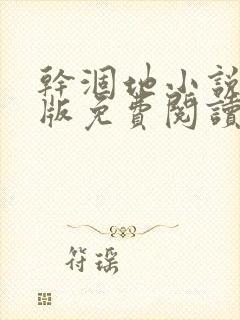 幹涸地小說
版免費閱讀
符瑤